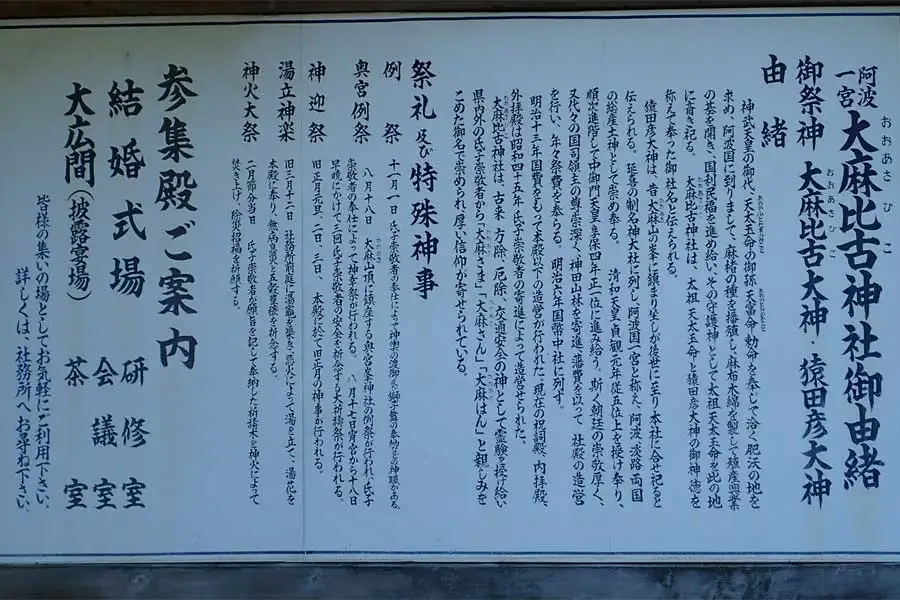 阿波
一宮
大麻比古神社御由緒
おおあさひこ
御祭神 大麻比古大神・猿田彦大神
おおあさひこ
由緒
神武天皇の御代、天太玉命の御孫 天富命 勅命を奉じて洽く肥沃の地を
求め、阿波国に到りまして、麻楮の種を播殖し麻布木綿を製して殖産興業
の基を開き、国利民福を進め給い、その守護神として太祖天太玉命を此の地
に斎き祀る。 大麻比古神社は、太祖 天太玉命と猿田彦大神の御神徳を
称えて奉った御社名と伝えられる。
猿田彦大神は、昔大麻山の峯に鎮まり坐しが後世に至り本社に合せ祀ると
伝えられる。延喜の制名神大社に列し、阿波国一宮と称え、阿波、淡路両国
の総産土神として崇め奉る。 清和天皇貞観元年従五位上を授け奉り、
順次進階して中御門天皇享保四年正一位に進み給う。斯く朝廷の崇敬厚く、
又代々の国司領主の尊崇深く神田山林を寄進、藩費を以って 社殿の造営
を行い、年々祭費を奉らる。 明治六年国幣中社に列す。
明治十三年国費をもって本殿以下の造営が行われた。現在の祝詞殿、内拝殿、
外拝殿は昭和四十五年、氏子崇敬者の寄進によって造営せられた。
大麻比古神社は、古来 方除、厄除、交通安全の神として霊験を授け給い
県内外の氏子崇敬者から「大麻さま」「大麻さん」「大麻はん」と親しみを
こめた御名で崇められ厚い信仰が寄せられている。
祭礼及び特殊神事
例祭 十一月一日 氏子崇敬者の奉仕によって神輿の渡御、獅子舞の奉納などの神賑がある。
奥宮例祭 八月十八日 大麻山頂に鎮座する奥宮峯神社の例祭が行われ、氏子
崇敬者の奉仕によって神幸祭が行われる。 八月十七日宵宮から十八日
早暁にかけて三回氏子崇敬者の安全を祈念する大祈祷祭が行われる。
神迎祭 旧正月元旦、二日、三日、 本殿に於て旧正月の神事が行われる。
湯立神楽 旧三月十二日 社務所前庭に湯竈を築き、忌火によって湯を立て、湯花を
本殿に奉り、無病息災と五穀豊穣を祈念する。
神火大祭 二月節分当日 氏子崇敬者が願旨を記して奉納した祈祷木を神火によって
焚き上げ、除災招福を祈願する。
参集殿ご案内
結婚式場 研修室
会議室
大広間(披露宴場) 茶室
皆様の集いの場としてお気軽にご利用下さい。
詳しくは、社務所へお尋ね下さい。